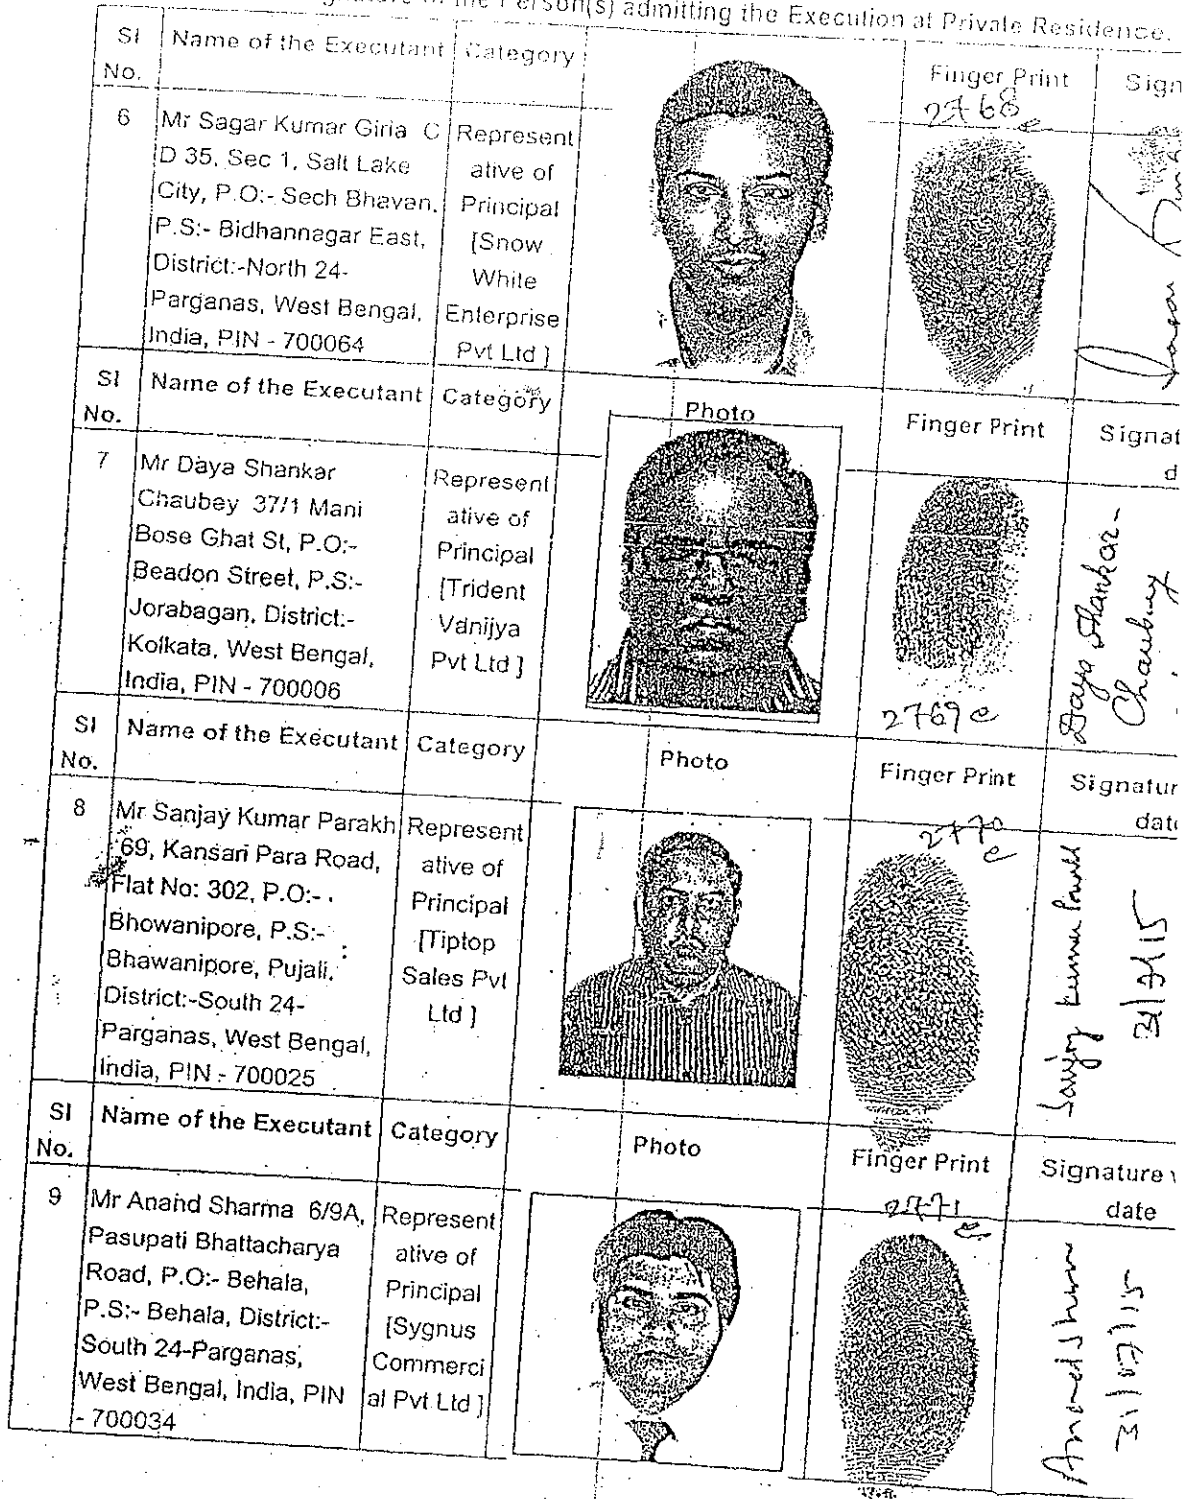 the Person(s) admitting the Execution at Private Residence.
Sl No. Name of the Executant Category Finger Print Sign
2768
6 Mr Sagar Kumar Giria C
D 35, Sec 1, Salt Lake
City, P.O:- Sech Bhavan,
P.S:- Bidhannagar East,
District:-North 24-
Parganas, West Bengal,
India, PIN - 700064
Represent
ative of
Principal
[Snow
White
Enterprise
Pvt Ltd ]
Sl No. Name of the Executant Category Photo Finger Print Signat
d
7 Mr Daya Shankar
Chaubey 37/1 Mani
Bose Ghat St, P.O:-
Beadon Street, P.S:-
Jorabagan, District:-
Kolkata, West Bengal,
India, PIN - 700006
Represent
ative of
Principal
[Trident
Vanijya
Pvt Ltd ]
2769 e
Daya Shankar
Chaubey
Sl No. Name of the Executant Category Photo Finger Print Signatur
date
2770
e
8 Mr Sanjay Kumar Parakh
69, Kansari Para Road,
Flat No: 302, P.O:-
Bhowanipore, P.S:-
Bhawanipore, Pujali,
District:-South 24-
Parganas, West Bengal,
India, PIN - 700025
Represent
ative of
Principal
[Tiptop
Sales Pvt
Ltd ]
Sanjay Kumar
31/7/15
Sl No. Name of the Executant Category Photo Finger Print Signature
date
2771
e
9 Mr Anand Sharma 6/9A,
Pasupati Bhattacharya
Road, P.O:- Behala,
P.S:- Behala, District:-
South 24-Parganas,
West Bengal, India, PIN
- 700034
Represent
ative of
Principal
[Sygnus
Commerci
al Pvt Ltd ]
Anand Sharma
31/07/15